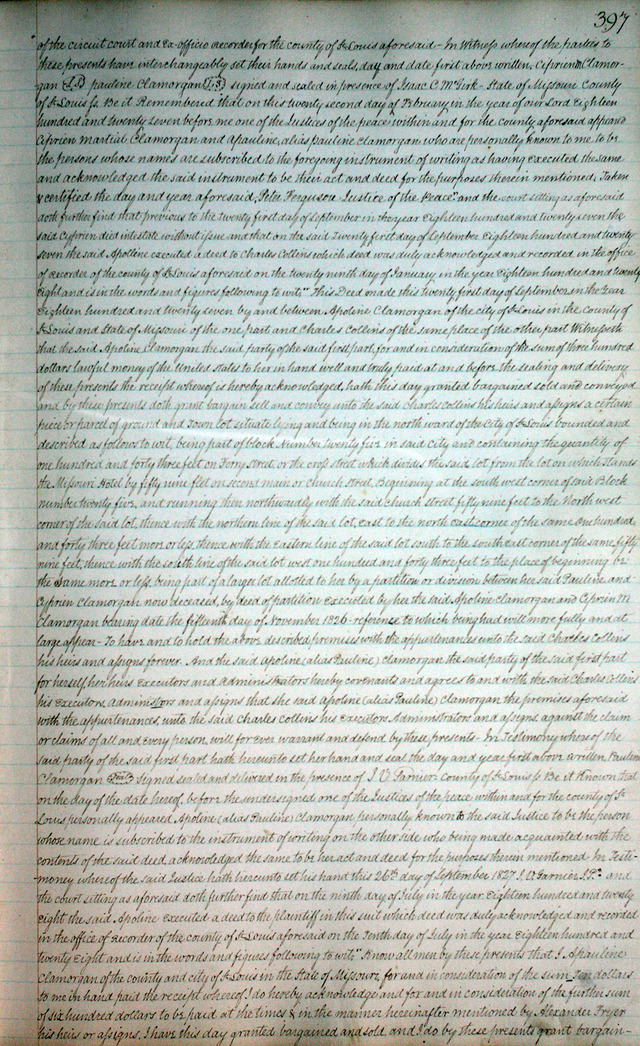 397
of the circuit court and Ex-officio recorder for the county of St Louis aforesaid - In Witness whereof the parties to
these presents have interchangeably set their hands and seals, day and date first above written, Cyprien M Clamor-
gan (L.S) pauline Clamorgan (L.S) signed and sealed in presence of Isaac C McGirk - State of Missouri County
of St Louis ss. Be it Remembered that on this twenty second day of February in the year of our Lord Eighteen
hundred and twenty seven before me one of the Justices of the peace within and for the county aforesaid appeard
Ciprien martial Clamorgan and Apauline, alias pauline Clamorgan, who are personally known to me to be
the persons whose names are subscribed to the foregoing instrument of writing as having executed the same
and acknowledged the said instrument to be their act and deed for the purposes therein mentioned, Taken
& certified the day and year aforesaid, Peter Ferguson Justice of the Peace" and the court sitting as aforesaid
doth further find that previous to the twenty first day of September in the year Eighteen hundred and twenty seven the
said Cyprien died intestate without issue and that on the said Twenty first day of September Eighteen hundred and twenty
seven the said Apoline executed a deed to Charles Collins which deed was duly acknowledged and recorded in the office
of Recorder of the county of St Louis aforesaid on the twenty ninth day of January in the year Eighteen hundred and twenty
Eight and is in the words and figures following to wit: "This Deed made this twenty first day of September in the Year
Eighteen hundred and twenty seven by and between Apoline Clamorgan of the city of St Louis in the county of
St Louis and State of Missouri of the one part and Charles Collins of the same place of the other part Witnesseth
that the said Apoline Clamorgan the said party of the said first part, for and in consideration of the sum of three hundred
dollars lawful money of the United States to her in hand well and truly paid at and before the sealing and delivery
of these presents the receipt whereof is hereby acknowledged, hath this day granted bargained sold and conveyed
and by these presents doth grant bargain sell and convey unto the said Charles Collins his heirs and assigns a certain
piece or parcel of ground and Town lot situate lying and being in the north ward of the City of St Louis bounded and
described as follows to wit, being part of block Number twenty five in said City and containing the quantity of
one hundred and forty three feet on Ferry Street or the crop street which divides the said lot from the lot on which stands
the Missouri Hotel by fifty nine feet on second main or church street, Beginning at the south west corner of said Block
number twenty five, and running then northwardly with the said church street fifty nine feet to the North west
corner of the said lot, thence with the northern line of the said lot, East to the north east corner of the same one hundred
and forty three feet more or less, thence with the Eastern line of the said lot south to the south east corner of the same fifty
nine feet, thence with the south line of the said lot west one hundred and forty three feet to the place of beginning be
the same more or less, being part of a large lot allotted to her by a partition or division between her said Pauline and
Cyprien Clamorgan now deceased, by deed of partition executed by her the said Apoline Clamorgan and Ciprien M
Clamorgan bearing date the fifteenth day of November 1826 - reference to which being had will more fully and at
large appear - To have and to hold the above described premises with the appurtenances unto the said Charles Collins
his heirs and assigns forever. And the said Apoline (alias Pauline) Clamorgan the said party of the said first part
for herself, her heirs Executors and Administrators hereby covenants and agrees to and with the said Charles Collins
his Executors, administors and assigns that she said Apoline (alias Pauline) Clamorgan the premises aforesaid
with the appurtenances, unto the said Charles Collins his Executors Administrators and assigns against the claim
or claims of all and Every person, will for Ever warrant and defend by these presents - In Testimony where of the
said party of the said first part hath hereunto set her hand and seal the day and year first above written Pauline
Clamorgan (Seal) Signed sealed and delivered in the presence of J. V Garnier County of St Louis ss Be it Known that
on the day of the date hereof, before the undersigned one of the Justices of the peace within and for the county of St
Louis personally appeared, Apoline (alias Pauline) Clamorgan personally known to the said Justice to be the person
whose name is subscribed to the instrument of writing on the other side who being made acquainted with the
contents of the said deed, acknowledged the same to be her act and deed for the purposes therein mentioned - In Testi-
mony where of the said Justice hath hereunto set his hand this 26th day of September 1827 J. V Garnier J.P." and
the court sitting as aforesaid doth further find that on the ninth day of July in the year Eighteen hundred and twenty
Eight the said Apoline Executed a deed to the plaintiff in this suit which deed was duly acknowledged and recorded
in the office of Recorder of the county of St Louis aforesaid on the Tenth day of July in the year Eighteen hundred and
twenty Eight and is in the words and figures following to wit "Know all men by these presents that I, Apauline
Clamorgan of the county and city of St Louis in the State of Missouri, for and in consideration of the sum Ten dollars
to me in hand paid the receipt whereof I do hereby acknowledge and for and in consideration of the further sum
of six hundred dollars to be paid at the times & in the manner hereinafter mentioned by Alexander Fryer
his heirs or assigns, I have this day granted bargained and sold, and I do by these presents grant bargain-